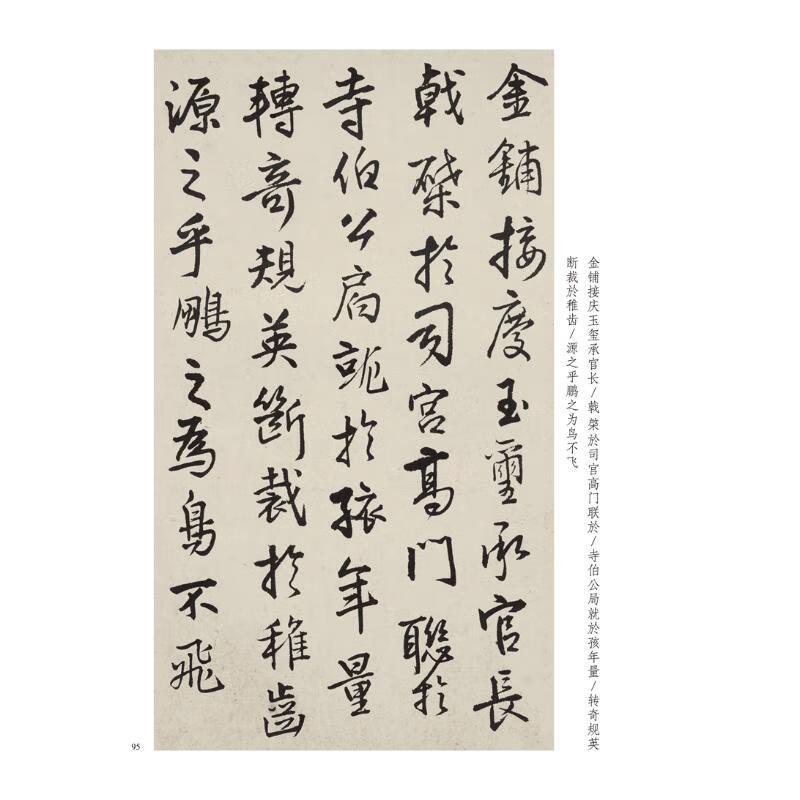 金鋪接慶玉璽承官長
戟棨於司宮高門聯於
寺伯公局就於孩年量
轉奇規英斷裁於稚齒
源之乎鵬之為鳥不飛
金铺接庆玉玺承官长/戟 棨於司官高门联於/寺伯公局就於孩年量/转奇规英
断裁於稚齿/源之乎鹏之为鸟不飞
95